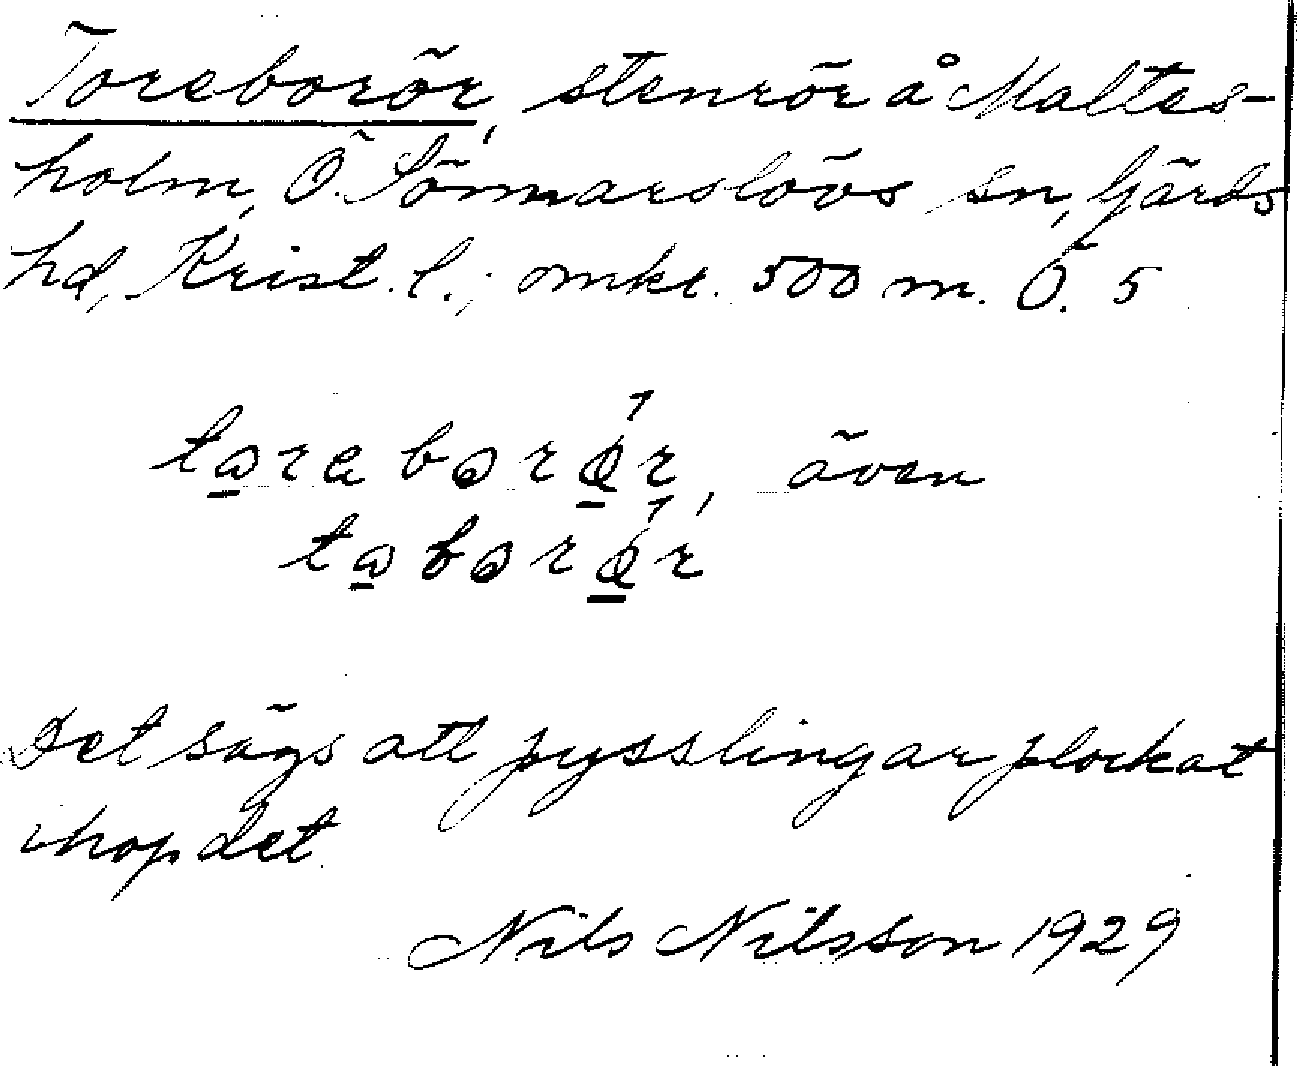 Toreborör, stenrör å Maltes-
holm, Ö. Sönnarslövs sn, Gärds
hd, Krist. l.; omkr. 500 m. Ö. 5
torebɷrö́r, även
tobɷrö́r
Det sägs att pysslingar plockat
ihop det.
Nils Nilsson 1929